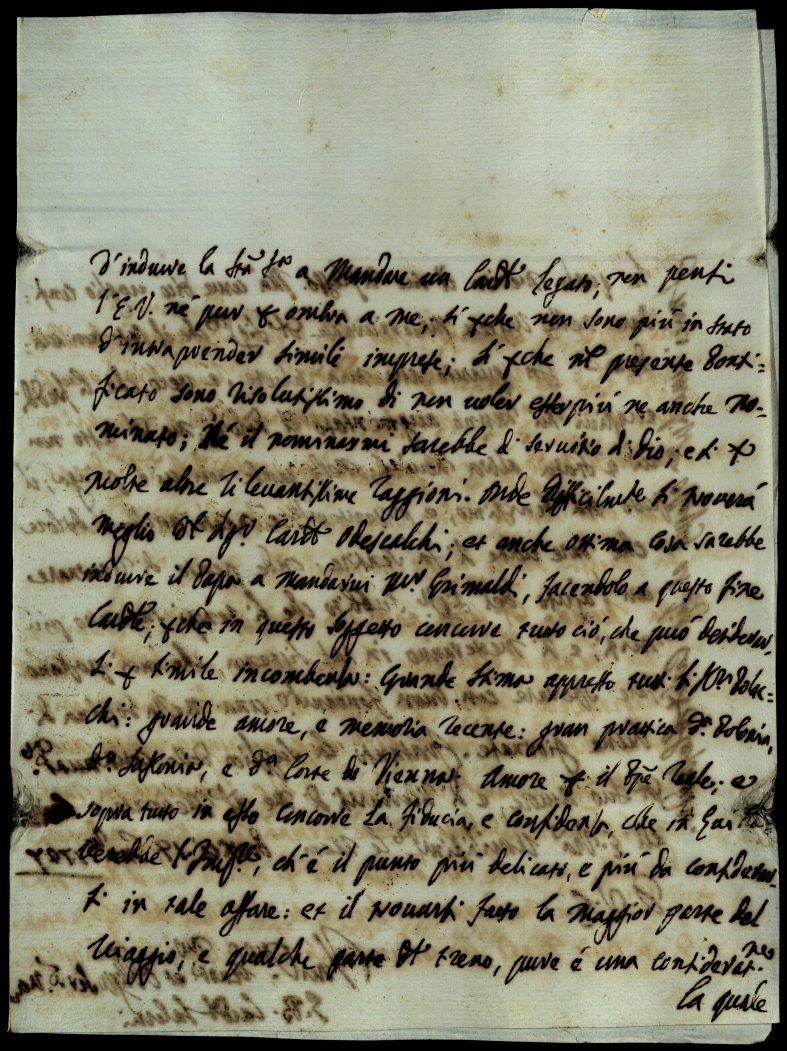 d'indurre la Stà Sua a Mandare un Cardl Legato; non pensi
l'E.V. né pur per ombra a me; sì perche non sono più in stato
d'intraprender simile imprese; sì perche nel presente Ponti=
ficato sono risolutissimo di non voler esser più ne anche no=
minato; Né il nominarmi sarebbe di servitio di Dio; e sì per
molte altre rilevantissime raggioni. Onde difficilmte si troverà
meglio del Sigr Cardl Odescalchi; et anche ottima cosa sarebbe
indurre il Papa a mandarvi Mr Grimaldi, facendolo a questo fine
Cardle; perche in questo soggetto concorre tutto ciò, che può desiderar,
si per simile incombenza: Grande stima appresso tutti li Polac=
chi: grande amore, e memoria recente: gran prattica da Polonia,
da Sassonia, e da Corte di Vienna: Amore per il Ppe Reale; e
sopra tutto in esso concorre la fiducia, e confidenza, che in Lui
haverebbe l'Impre, ch'è il punto più delicato, e più da considerar=
si in tale affare: et il trovarsi fatto la maggior parte del
Viaggio, e qualche parte del treno, pure è una consideratne
la quale